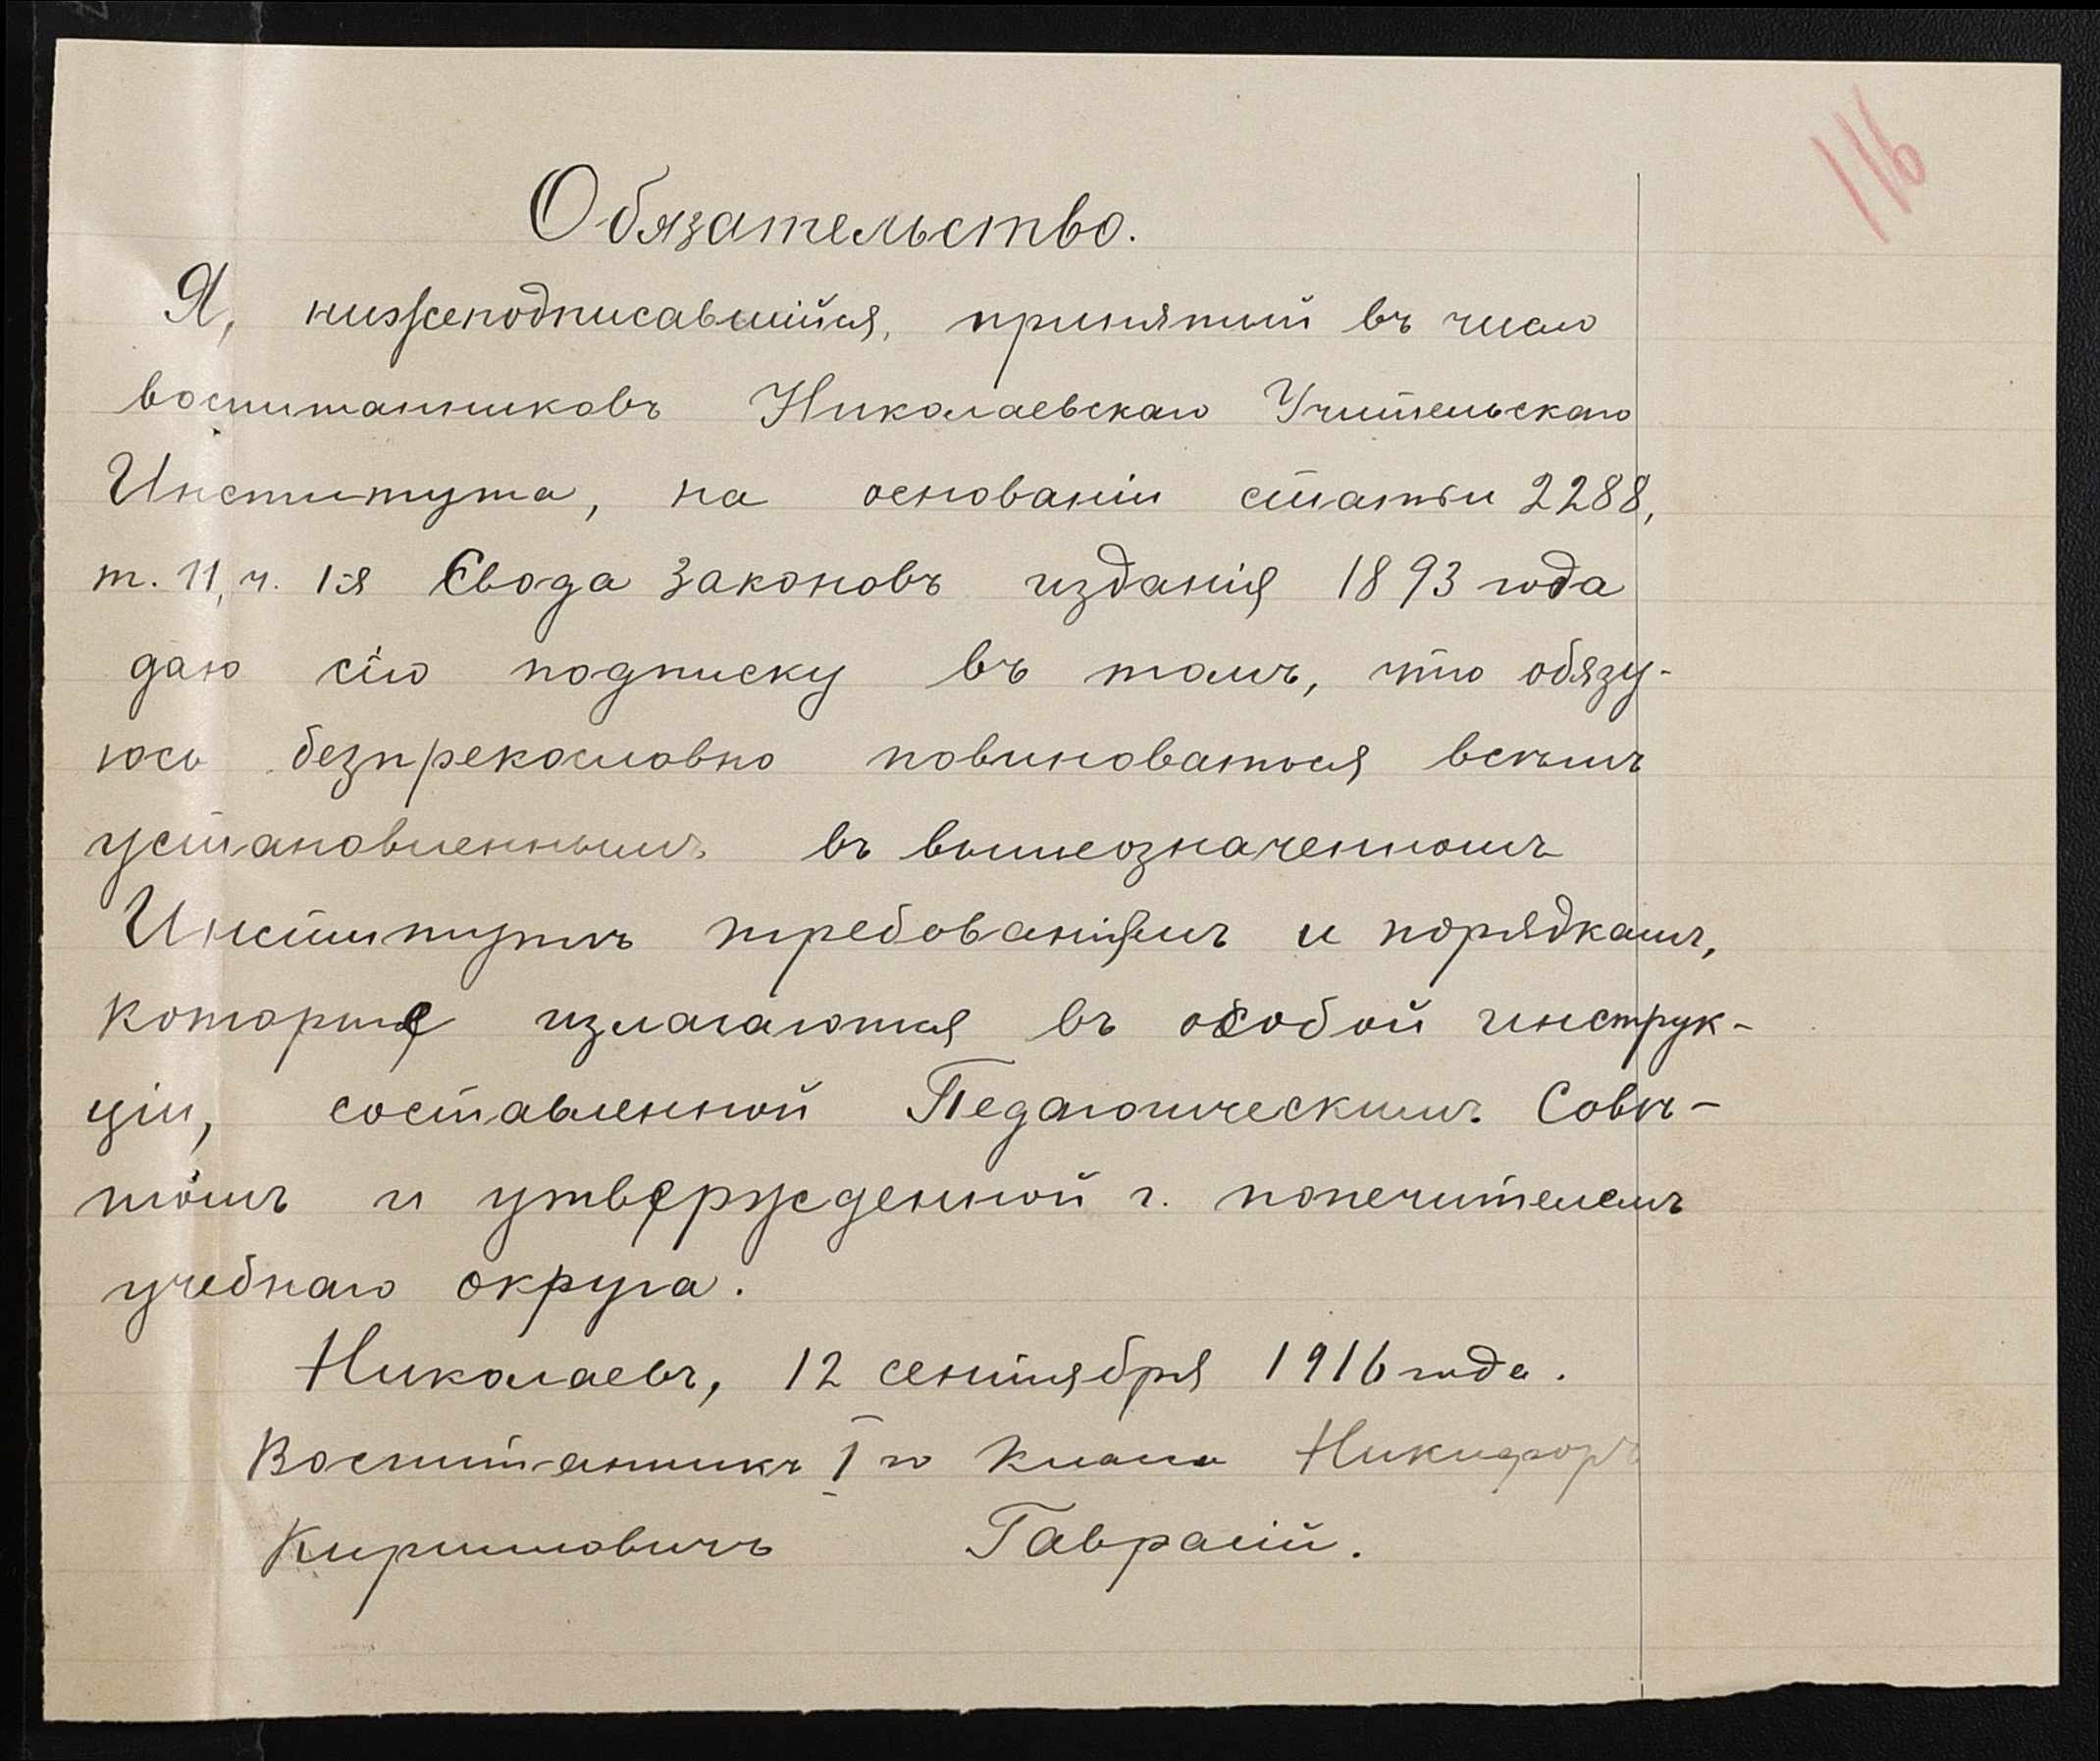 116
Обязательство.
Я, нижеподписавшійся, принятый въ число
воспитанниковъ Николаевскаго Учительскаго
Института, на основаніи статьи 2288,
т. 11, ч. 1-я Свода Законовъ изданія 1893 года
даю сію подписку въ томъ, что обязу-
юсь безпрекословно повиноваться всѣмъ
установленнымъ въ вышеозначенномъ
Институтѣ требованіямъ и порядкамъ,
которые излагаются въ особой инструк-
ціи, составленной Педагогическимъ Совѣ-
томъ и утвержденной г. попечителемъ
учебнаго округа.
Николаевъ, 12 сентября 1916 года.
Воспитанникъ I го класса Никифоръ
Кирилловичъ Гавралій.